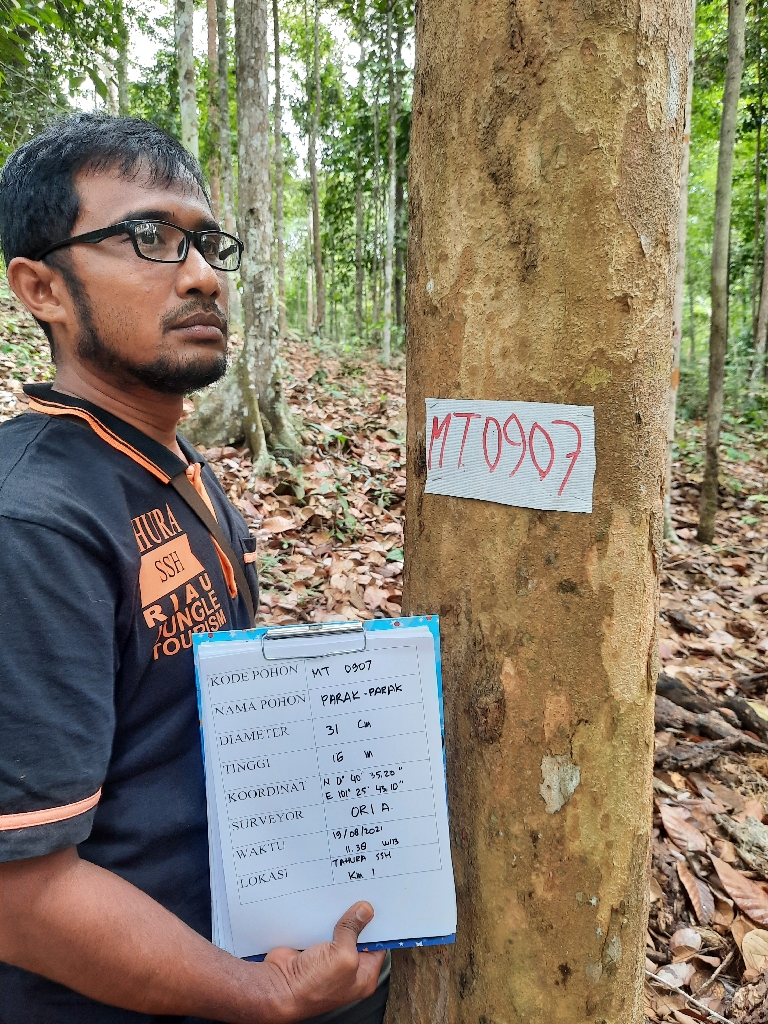 MT0907
HURA
SSH
RIAU
JUNGLE
TOURISM
KODE POHON MT 0907
NAMA POHON PARAK-PARAK
DIAMETER 31 Cm
TINGGI 16 m
KOORDINAT N 0° 40' 35.20" E 101° 25' 43.10"
SURVEYOR ORI A.
WAKTU 19/08/2021 11.38 WIB
LOKASI TAHURA SSH Km 1